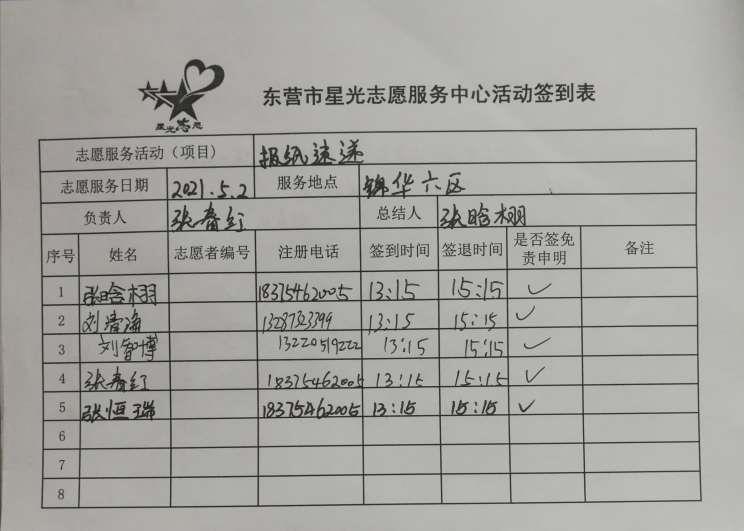 星光志愿
东营市星光志愿服务中心活动签到表
志愿服务活动（项目） 报纸速递
志愿服务日期 2021.5.2 服务地点 锦华六区
负责人 张春红 总结人 张晗栩
序号 姓名 志愿者编号 注册电话 签到时间 签退时间 是否签免责申明 备注
1 张晗栩 18375462005 13:15 15:15 ✓
2 刘清海 13287323399 13:15 15:15 ✓
3 刘智博 13220519222 13:15 15:15 ✓
4 张春红 18375462005 13:15 15:15 ✓
5 张恒瑞 18375462005 13:15 15:15 ✓
6
7
8